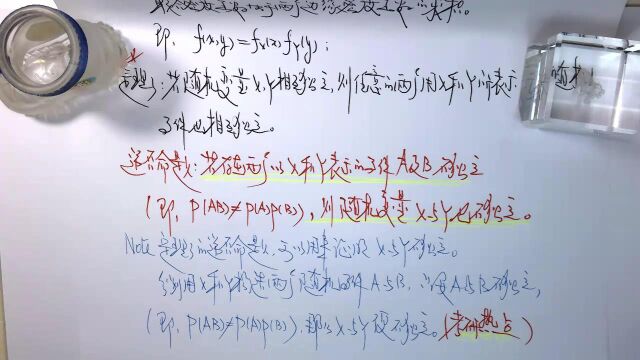 即, f(x,y)=fx(x)fY(y);
定理: 若随机变量X,Y相互独立, 则任意的两个用X和Y所表示
事件也相互独立。
逆否命题: 若存在两个以X和Y表示的事件A及B不独立
(即, P(AB)≠P(A)P(B)), 则随机变量X与Y也不独立。
Note 定理的逆否命题, 可以用来证明X与Y不独立。
分别用X和Y构造两个随机事件A与B, 若A与B不独立,
(即, P(AB)≠P(A)P(B)), 那么X与Y便不独立。(考研热点)